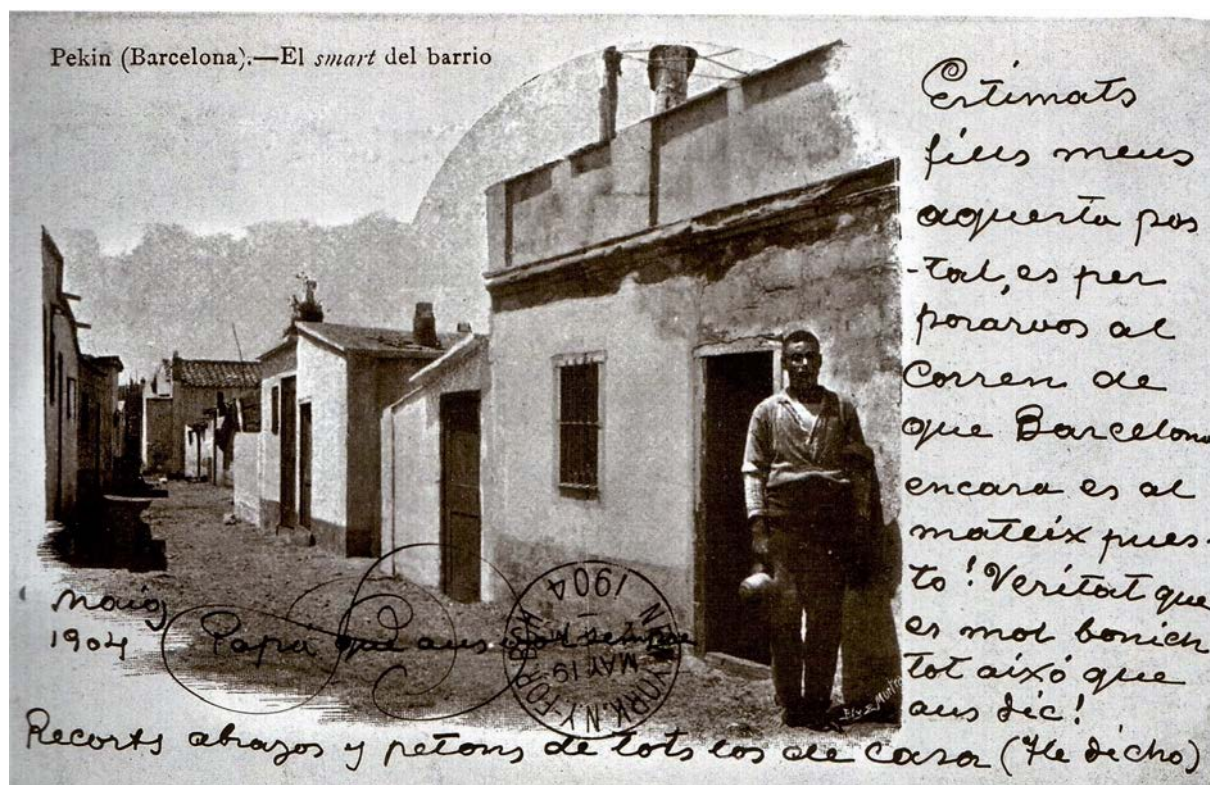 Pekin (Barcelona).—El smart del barrio
Estimats
fills meus
aquesta pos
-tal, es per
posarvos al
Corren de
que Barcelona
encara es al
mateix pues-
to! Veritat que
es mol bonich
tot aixó que
aus dic!
Maig
1904
Papá que aus
Recorts abrazos y petons de tots los de casa (He dicho)
NEW YORK, N.Y.
MAY 19
1904